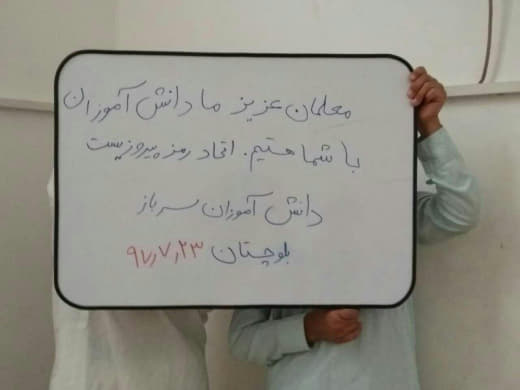 معلمان عزیز ما دانش آموزان
با شما هستیم. اتحاد رمز پیروزیست
دانش آموزان سرباز
بلوچستان ۹۷٫۷٫۲۳